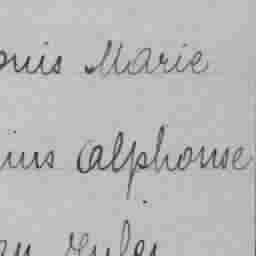 ouis Marie
ius Alphonse